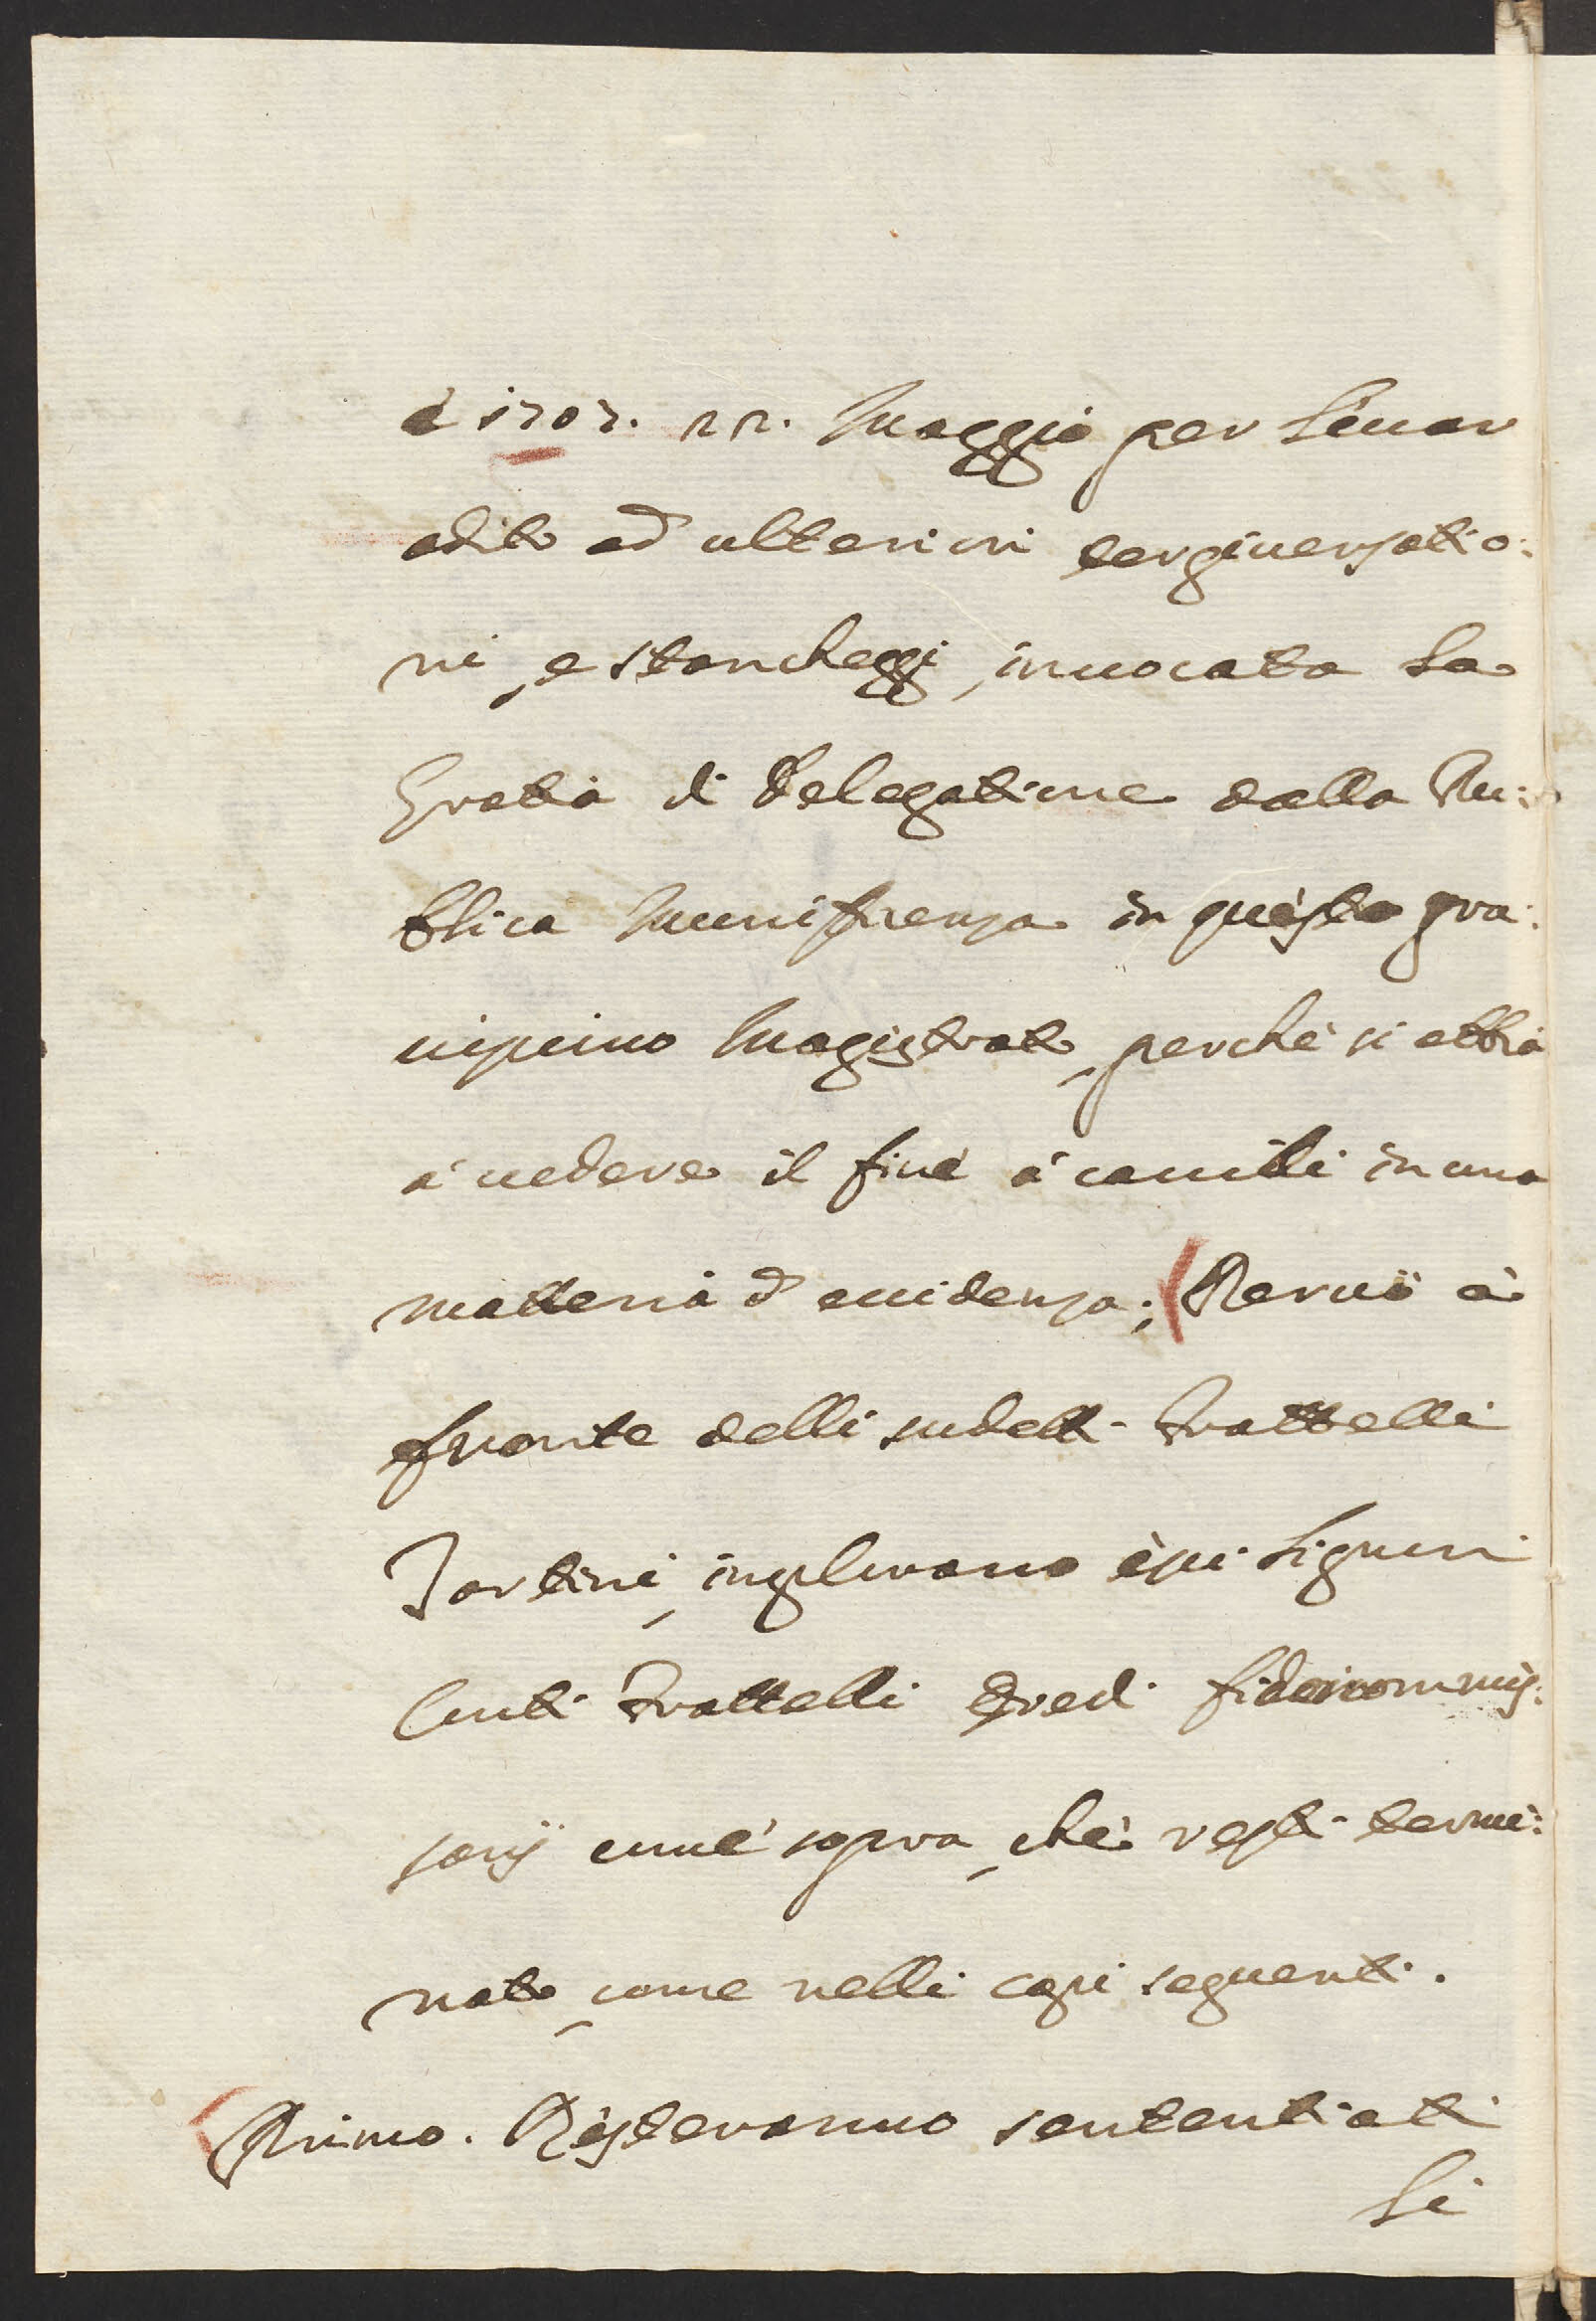 è 1707. 22. Maggio per leuar
adito ad ulteriori tergiuersatio:
ni, e stancheggi, inuocata la
Gratia di Delegatione dalla Pu:
blica Munificenza in questo gra:
uissimo Magistrato, perche si abbia
à uedere il fine à cauilli in una
materia d' euidenza; Perciò à
fronte delli sudetti Frattelli
Tartini, implorano essi Signori
Conti Frattelli Eredi fideicommis:
sarij come sopra, che resti termi:
nato, come nelli capi seguenti.
Primo. Resteranno sententiati
li